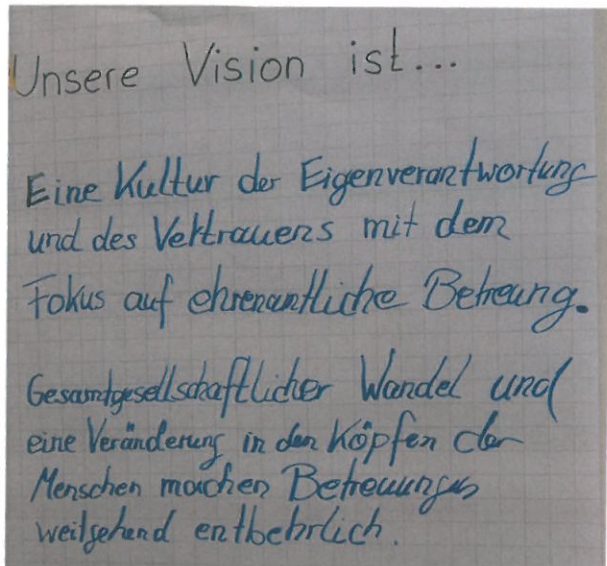 Unsere Vision ist...
Eine Kultur der Eigenverantwortung
und des Vertrauens mit dem
Fokus auf ehrenamtliche Betreung.
Gesamtgesellschaftlicher Wandel und
eine Veränderung in den Köpfen der
Menschen machen Betreuungen
weitgehend entbehrlich.